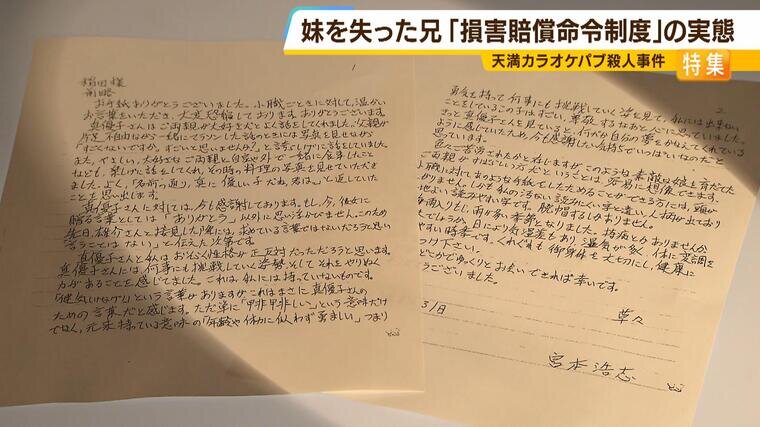 妹を失った兄「損害賠償命令制度」の実態
天満カラオケパブ殺人事件
特集
1
稲田様
前略
お手紙ありがとうございました。小職ごときに対して、温かい
お言葉をいただき、大変恐縮しております。ありがとうございます。
真優子さんはご両親が大好きだとよく話をしてくれました。「父親が
片足不自由ながら一緒にマラソンした話のときには写真を見せながら
「すごくないですか。すごいと思いませんか?」と言う
また、やさしい、大好きなご両親と自宅以外で一緒に食事したこと
なども、楽しげに話をしてくれ、その時の料理の写真を見せていただき
ました。よく、「名前の通り、真に優しい子だね、君は。」と返していた
ことを思い出します。
真優子さんに対しては、今も感謝しております。もし、今、彼女に
贈る言葉としては「ありがとう」以外に思い浮かびません。このため
先日、雄介さんと接見した際には、求めている言葉ではないだろうと思い
「言うことはない」と伝えた次第です。
真優子さんと私はおそらく性格が正反対だっただろうと思います。
真優子さんには、何事にも挑戦していく姿勢そしてそれをやりぬく
力があることを感じてました。これは、私には持っていないものです。
「健気(けなげ)」という言葉がありますがこれはまさに真優子さんの
ための言葉だと感じます。ただ単に「甲斐甲斐しい」という意味だけ
ではなく、元来持っている意味の「年齢や体力に似合わず勇ましい」つまり
2
勇気を持って何事にも挑戦していく姿を見て、私には出来ない
ことをしているこの子はすごい、尊敬するなあと心に思っていました。
きっと真優子さんを見ていると、何だか自分の夢をかなえてくれている
ように感じていたため、今も感謝したい気持ちでいっぱいなのだと
思っています。
色々ご苦労されたかと存じますがこのような素敵な娘を育てた
ご両親がすばらしい方だということは容易に想像できます。
対してこのようなお手紙でしたためることができる方には、頭が
ありません。しかも私のつたない
地よい読みやすい字です。脱帽するしかありません。
梅雨入りもし、雨が多い季節となりました。持病とかありませんか
でしょうか。日により気温差もあり、湿気が多く、体に変調を
やすい時季です。くれぐれも御身体を大切にし、健康に
つけ下さい。
どこかでゆっくりとお会いできれば幸いです。
うございました。
草々
31日
宮本浩志